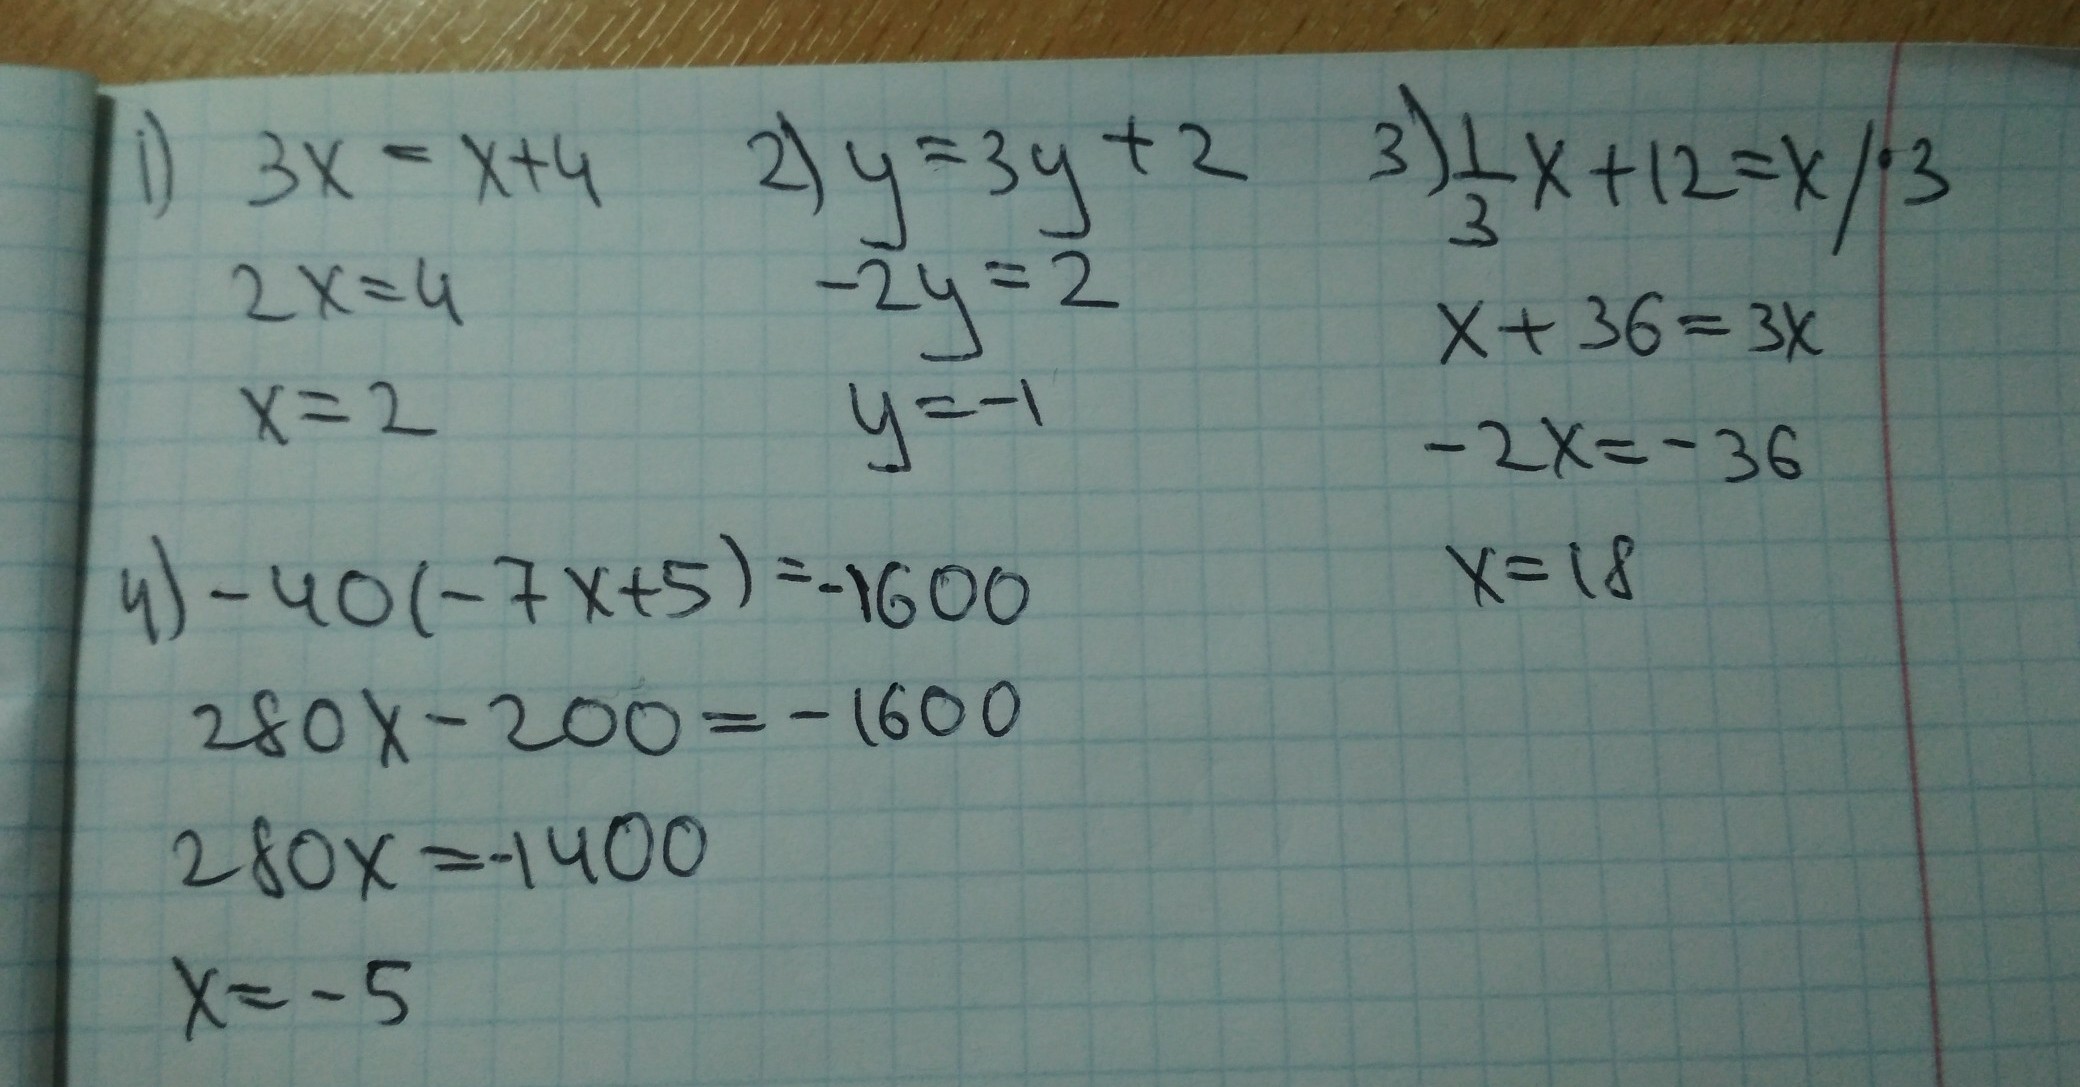 1) 3x = x+4
2x=4
x=2
2) y=3y+2
-2y=2
y=-1
3) 1/3 x+12=x /·3
x+36=3x
-2x=-36
x=18
4) -40(-7x+5)=-1600
280x-200=-1600
280x=-1400
x=-5